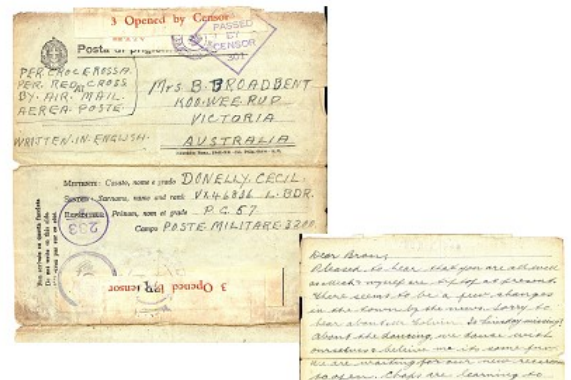 3 Opened by Censor
PASSED
BY
CENSOR
301
Posta di prigionieri
PER. CROCE ROSSA.
PER. RED CROSS
BY. AIR. MAIL.
AEREA POSTE.
WRITTEN. IN. ENGLISH.
Mrs B. BROADBENT
KOO. WEE. RUP.
VICTORIA
AUSTRALIA
MITTENTE: Casato, nome e grado DONELLY. CECIL.
SENDER: Surname, name and rank VX46836 L. BDR.
Prénom, nom et grade P.G. 57
Campo POSTE. MILITARE. 3200
Do not write on this side.
233
3 Opened by Censor
Dear Broan,
Pleased to hear that you are all well
as Mick & myself are tip top at present.
There seems to be a few changes
in the town by the news. Sorry to
hear about Mr Colvin. Is Lindsay missing?
About the dancing, we dance with
ourselves & believe me its some fun.
We are waiting for our new
to open. Chaps are learning to